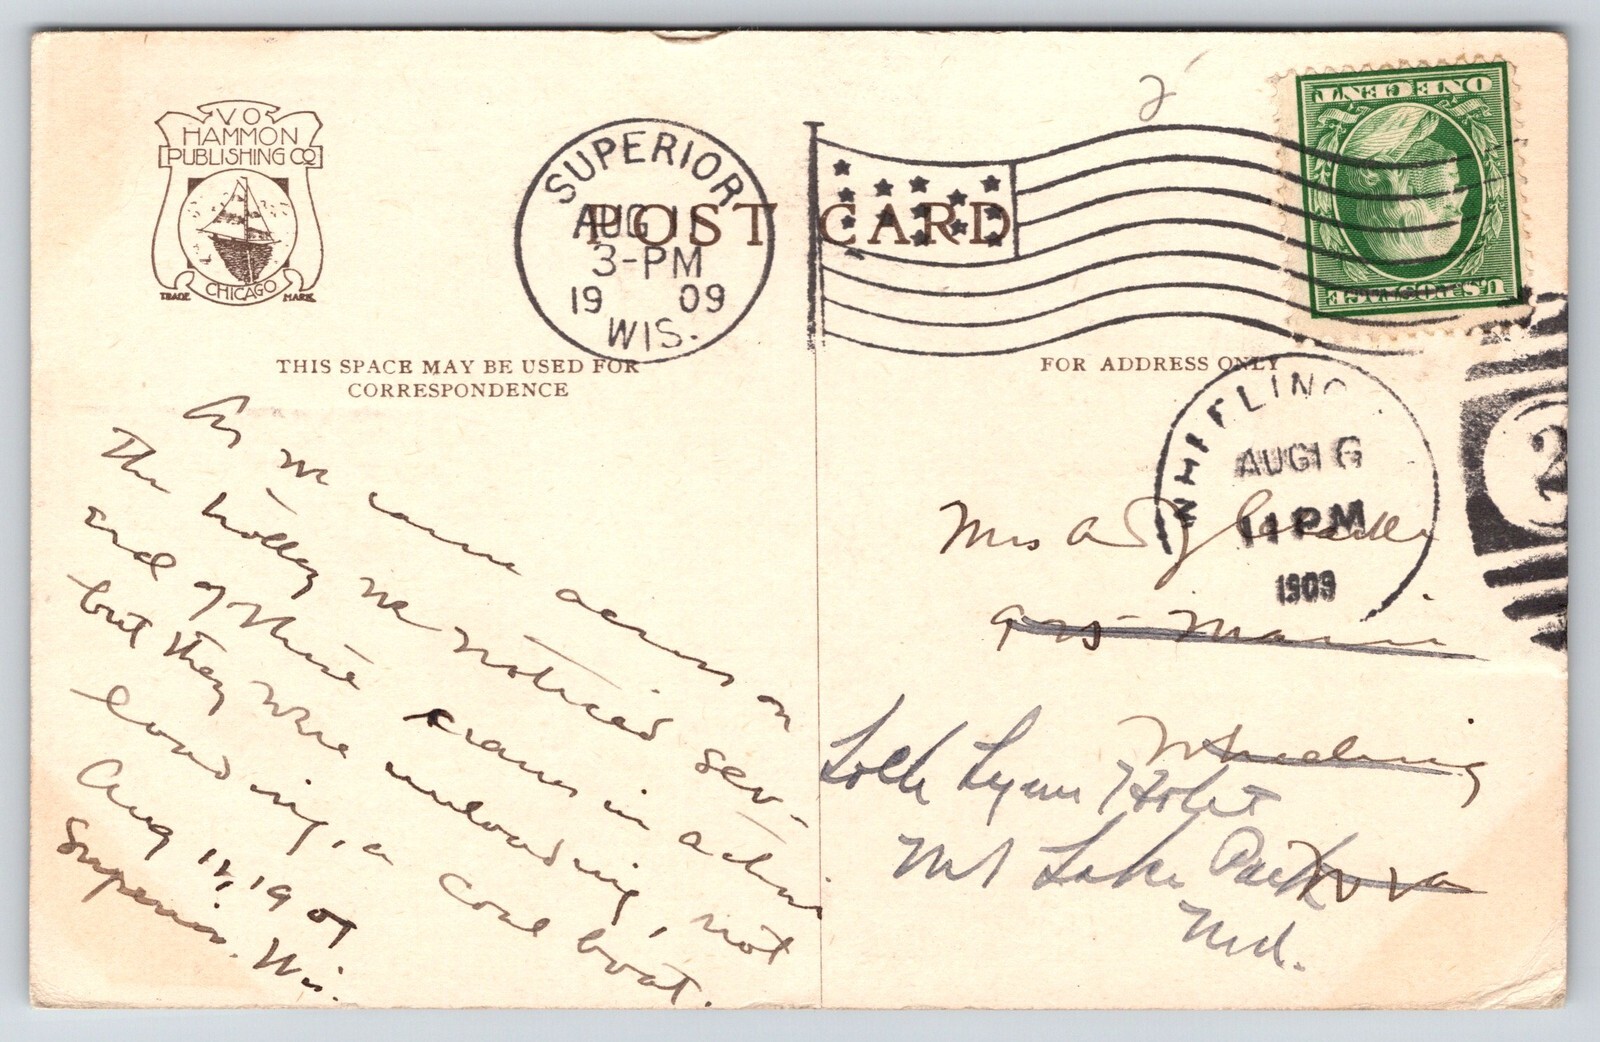 V O
HAMMON
PUBLISHING CO
CHICAGO
TRADE MARK
POST CARD
SUPERIOR
AUG 11
3-PM
19 09
WIS.
ONE CENT
U.S. POSTAGE
2
THIS SPACE MAY BE USED FOR
CORRESPONDENCE
FOR ADDRESS ONLY
WHEELING
AUG 16
11 PM
1909
2
As we came across on
the trolley we noticed sev-
eral of these cranes in action
but they were unloading, not
loading, a coal boat.
Aug 11, 1909
Superior, Wis.
Mrs A
Main
Wheeling
W Va
Loch Lynn Hotel
Mt Lake Park
Md.